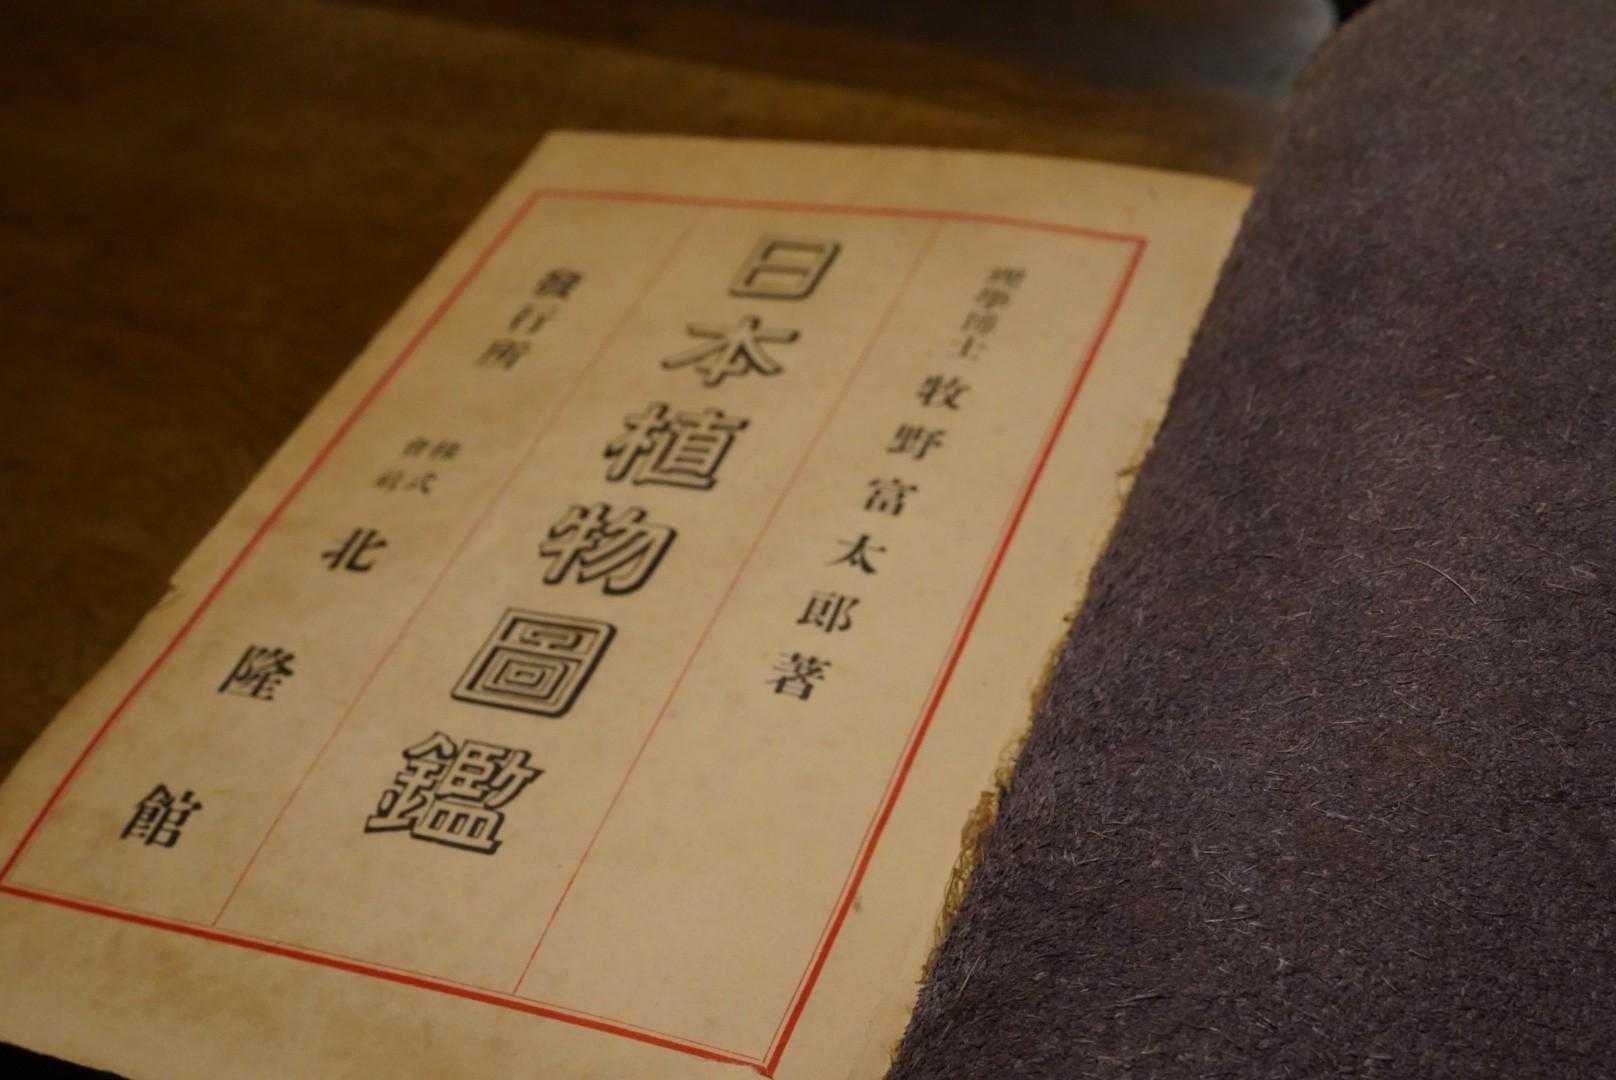 理學博士 牧野富太郎著
日本植物圖鑑
發行所 株式會社 北隆館